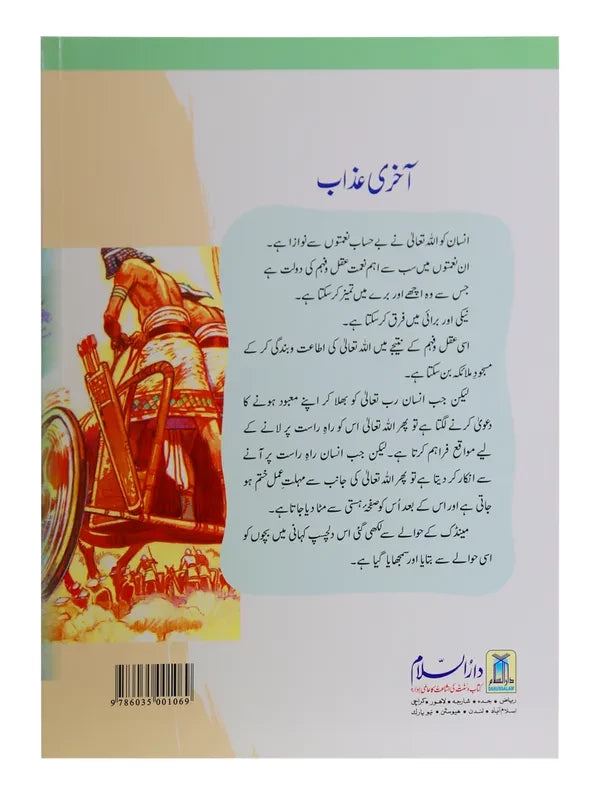 آخری عذاب
انسان کو اللہ تعالیٰ نے بے حساب نعمتوں سے نوازا ہے۔
ان نعمتوں میں سب سے اہم نعمت عقل و فہم کی دولت ہے
جس سے وہ اچھے اور برے میں تمیز کر سکتا ہے۔
نیکی اور برائی میں فرق کر سکتا ہے۔
اسی عقل و فہم کے نتیجے میں اللہ تعالیٰ کی اطاعت و بندگی کر کے
مسجودِ ملائکہ بن سکتا ہے۔
لیکن جب انسان رب تعالیٰ کو بھلا کر اپنے معبود ہونے کا
دعویٰ کرنے لگتا ہے تو پھر اللہ تعالیٰ اس کو راہِ راست پر لانے کے
لیے مواقع فراہم کرتا ہے۔ لیکن جب انسان راہِ راست پر آنے
سے انکار کر دیتا ہے تو پھر اللہ تعالیٰ کی جانب سے مہلتِ عمل ختم ہو
جاتی ہے اور اس کے بعد اُس کو صفحۂ ہستی سے مٹا دیا جاتا ہے۔
مینڈک کے حوالے سے لکھی گئی اس دلچسپ کہانی میں بچوں کو
اسی حوالے سے بتایا اور سمجھایا گیا ہے۔
دارُالسّلام
کتاب و سنت کی اشاعت کا عالمی ادارہ
ریاض • جدہ • شارجہ • لاہور • کراچی
اسلام آباد • لندن • ہیوسٹن • نیو یارک
دارالسلام
DARUSSALAM
9 786035 001069